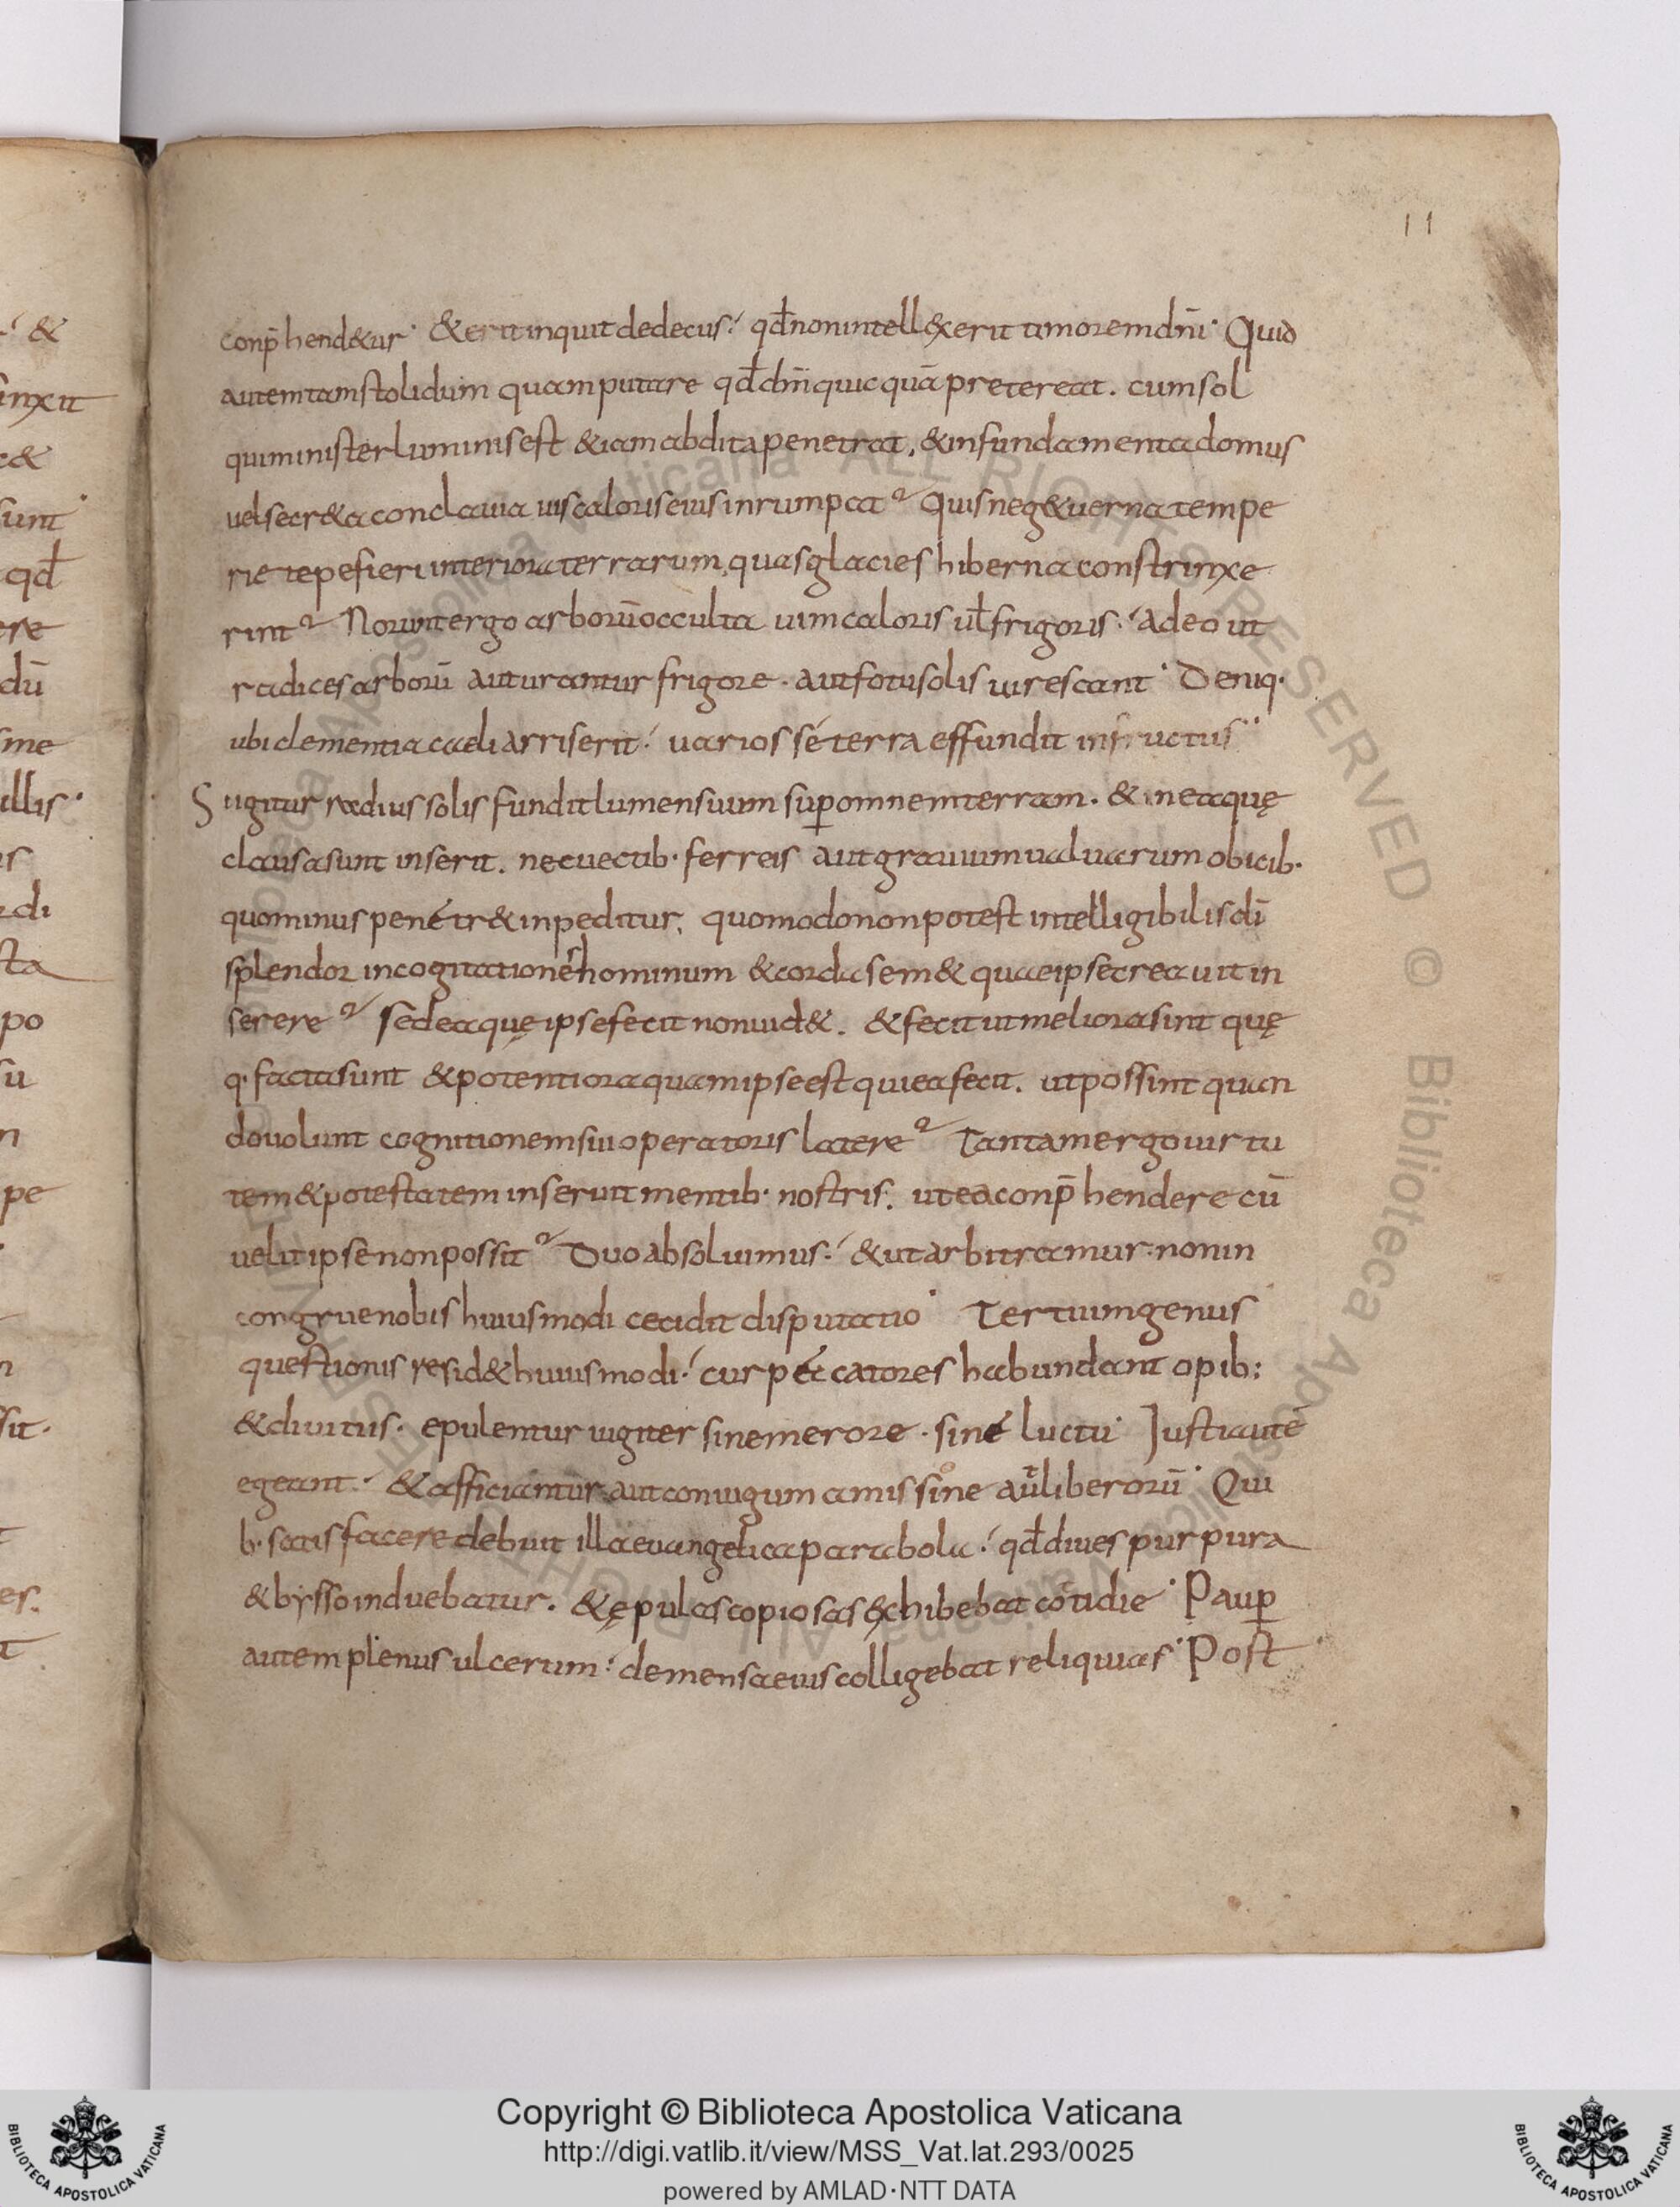 11
conp̄hend&ur· &erit inquit dedecus·́ qđ non intell&xerit timorem dn̄i· Quid
autem tam stolidum quam putare qđ dn̄m quicquā pretereat. cum sol
qui minister luminis est &iam abdita penetrat. & in fundamenta domus
uel secr&a conclauia uis caloris eius inrumpat? Quis neg& uerna tempe
rie tepefieri interiora terrarum, quas glacies hiberna constrinxe
rint? Norunt ergo arborū occulta uim caloris ul̄ frigoris·́ adeo ut
radices arborū aut urantur frigore· aut fotu solis uirescant· Deniq·
ubi clementia caeli arriserit·́ uarios sé terra effundit in fructus·
Si igitur radius solis fundit lumen suum sup̱ omnem terram. & in ea quę
clausa sunt inserit. nec uectib· ferreis aut grauium ualuarum obicib·
quominus penetr& inpeditur. quomodo non potest intelligibilis dī
splendor in cogitationes hominum & corda sem& quae ipse creauit in
serere? sed ea quę ipse fecit non uid&. & fecit ut meliora sint quę
q· facta sunt & potentiora quam ipse est qui ea fecit. ut possint quan
do uolunt cognitionem sui operatoris latere? Tantam ergo uirtu
tem & potestatem inseruit mentib· nostris. ut ea conp̄hendere cū
uelit ipse non possit? Duo absoluimus·́ & ut arbitramur· non in
congrue nobis huiusmodi cecidit disputatio· Tertium genus
questionis resid& huiusmodi·́ cur peccatores habundant opib:
& diuitiis· epulentur iugiter sine merore· sine luctu· Justi autē
egeant·́ & afficiantur· aut coniugum amissione aut liberorū· Qui
b· satisfacere debuit illa euangelica parabola·́ qđ diues purpura
& bysso induebatur. & ępulas copiosas &xhibebat cotidie· Paup̱
autem plenus ulcerum·́ de mensa eius colligebat reliquias· Post
& 
inxit
&
sunt·
qđ
ere
dū
illis·
di
sta
po
su
n
pe
sit·
es.
Copyright © Biblioteca Apostolica Vaticana
http://digi.vatlib.it/view/MSS_Vat.lat.293/0025
powered by AMLAD·NTT DATA
BIBLIOTECA APOSTOLICA VATICANA
BIBLIOTECA APOSTOLICA VATICANA